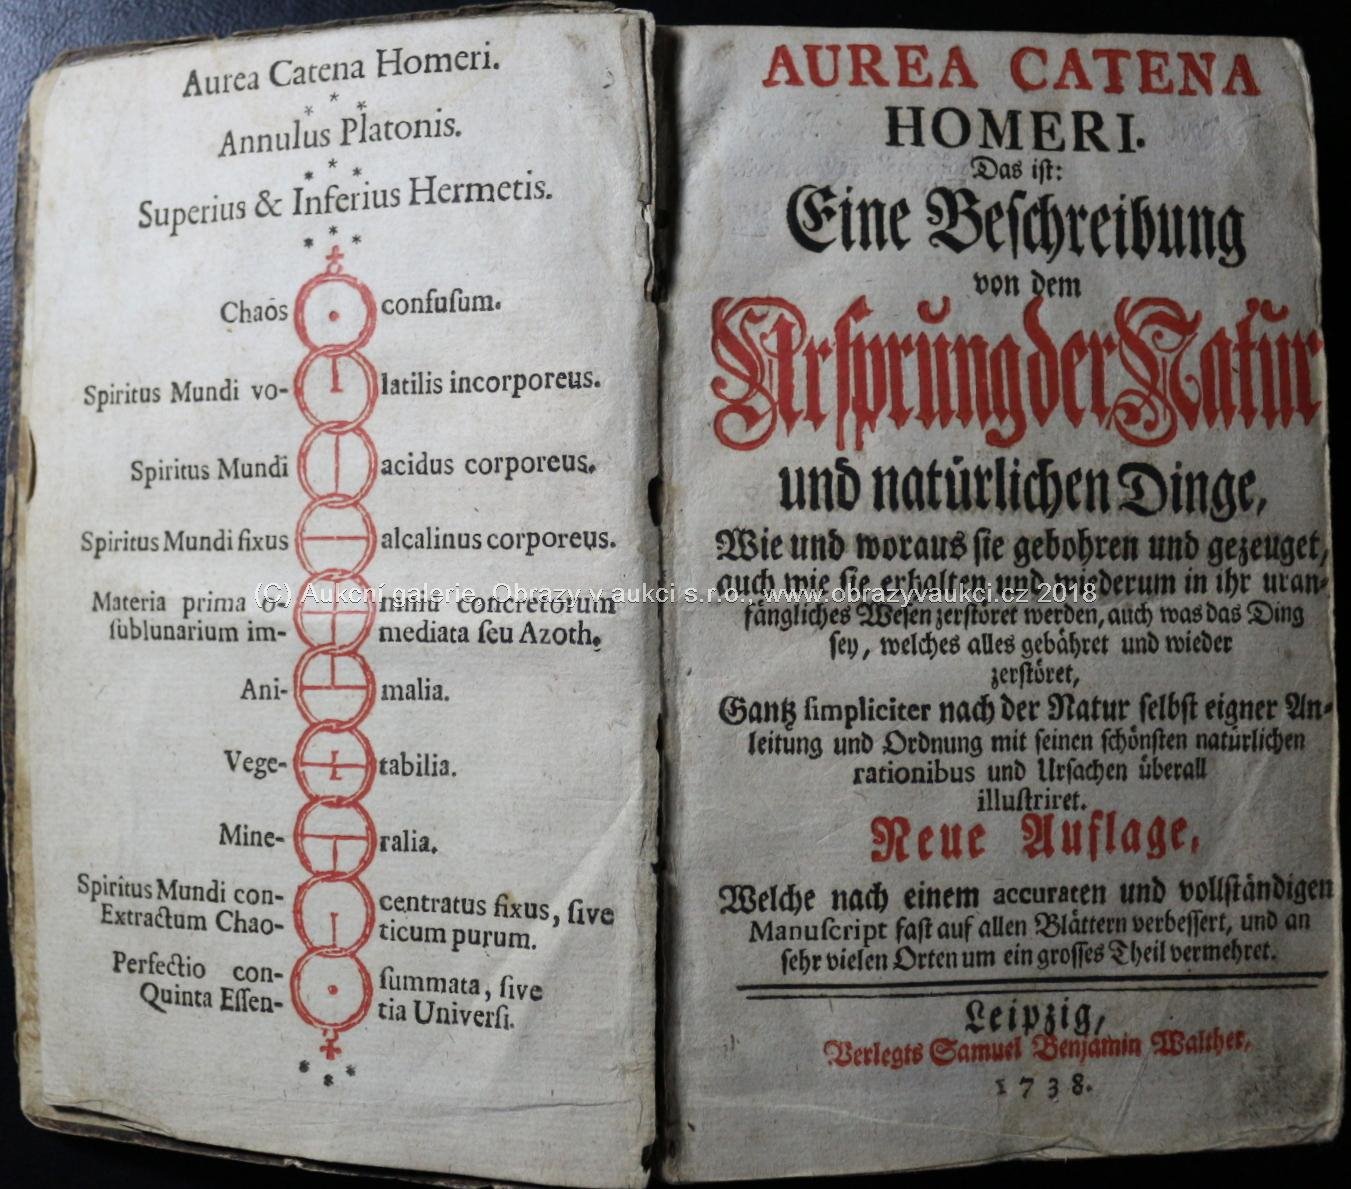 Aurea Catena Homeri.
* * *
Annulus Platonis.
* * *
Superius & Inferius Hermetis.
* * *
Chaos confuſum.
Spiritus Mundi vo- latilis incorporeus.
Spiritus Mundi acidus corporeus.
Spiritus Mundi fixus alcalinus corporeus.
Materia prima o- mniū concretorum
ſublunarium im- mediata ſeu Azoth.
Ani- malia.
Vege- tabilia.
Mine- ralia.
Spiritus Mundi con- centratus fixus, ſive
Extractum Chao- ticum purum.
Perfectio con- ſummata, ſive
Quinta Eſſen- tia Universi.
* * *
AUREA CATENA
HOMERI.
Das iſt:
Eine Beſchreibung
von dem
Urſprung der Natur
und natürlichen Dinge,
Wie und woraus ſie gebohren und gezeuget,
auch wie ſie erhalten und wiederum in ihr uran-
fängliches Weſen zerſtöret werden, auch was das Ding
ſey, welches alles gebähret und wieder
zerſtöret,
Gantz ſimpliciter nach der Natur ſelbſt eigner An-
leitung und Ordnung mit ſeinen ſchönſten natürlichen
rationibus und Urſachen überall
illuſtriret.
Neue Auflage,
Welche nach einem accuraten und vollſtändigen
Manuſcript faſt auf allen Blättern verbeſſert, und an
ſehr vielen Orten um ein groſſes Theil vermehret.
Leipzig,
Verlegts Samuel Benjamin Walther,
1738.
(C) Aukcní galerie, Obrazy v aukci s.r.o., www.obrazyvaukci.cz 2018